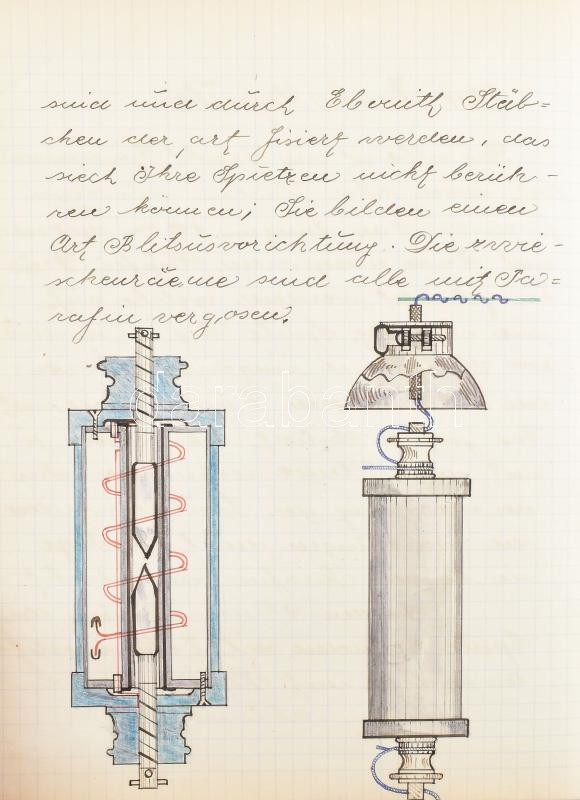 sind und durch Ebonith Stäb=
chen der art fisierf werden, das
siech Ihre Spietzen nicht berüh-
ren können; Sie bilden einen
Art Blitsusvorichtung. Die zwie-
schenräeme sind alle mit Pa=
rafin vergosen.
darabanth